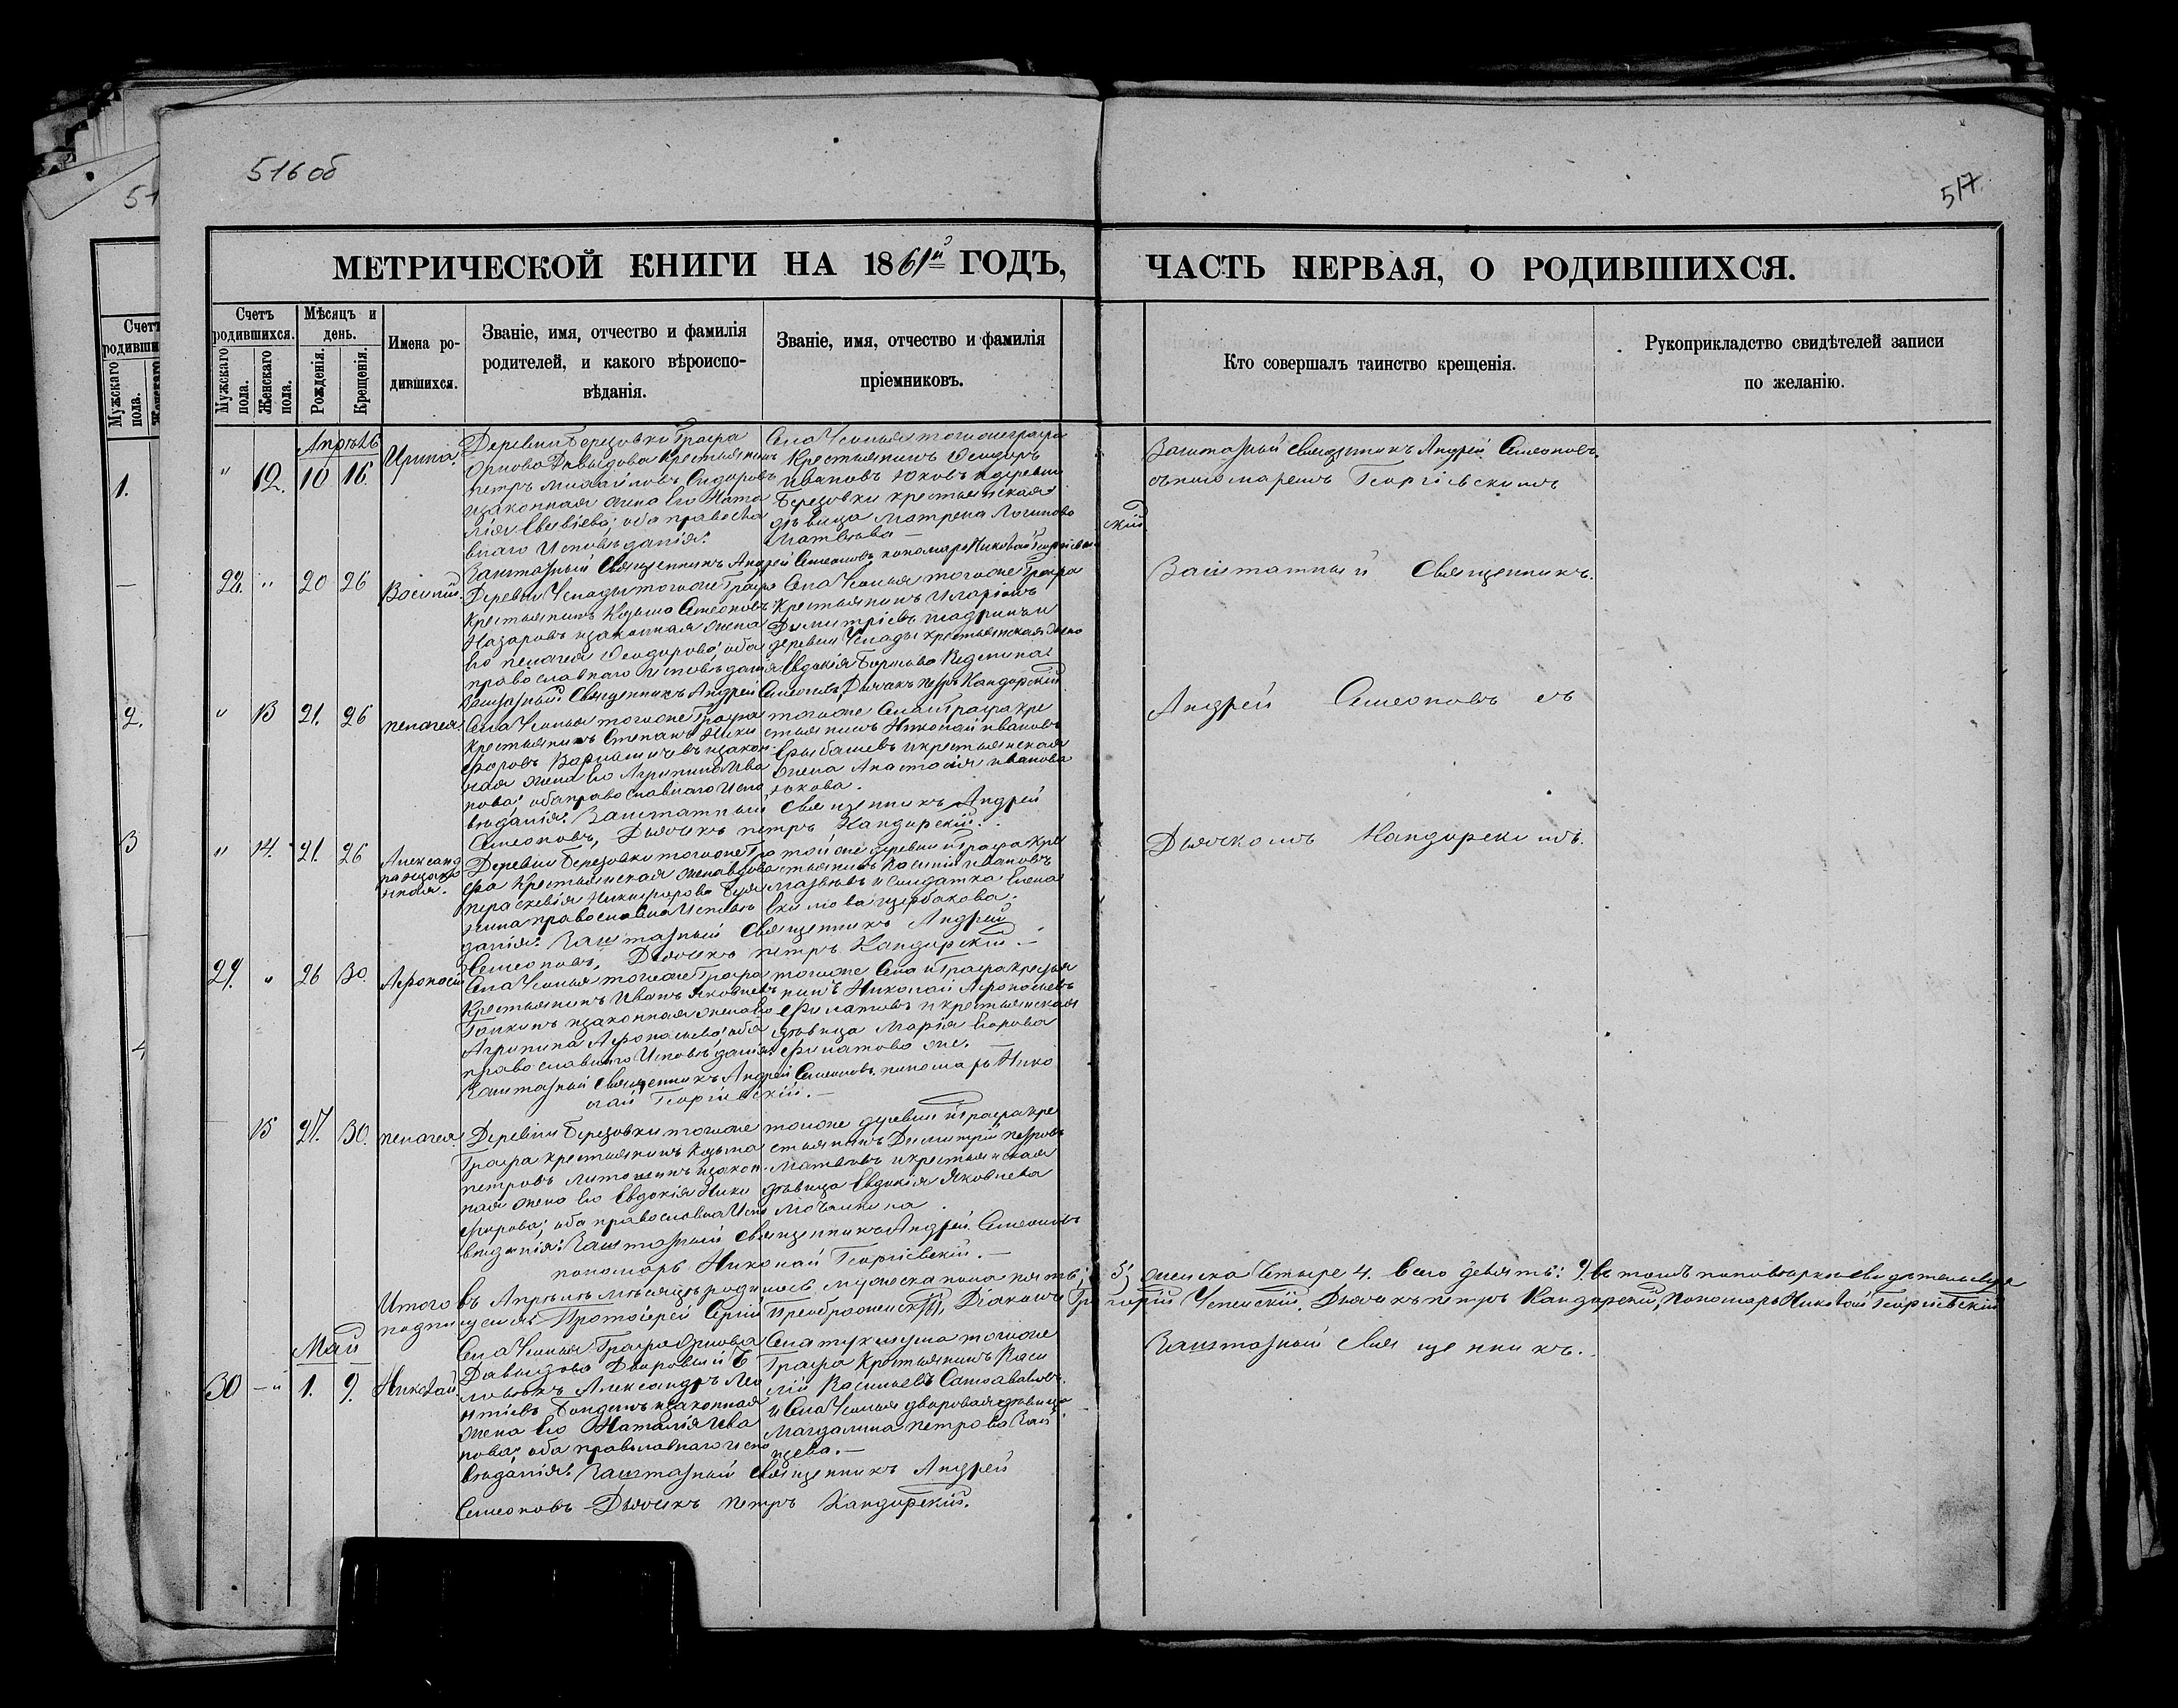 516 об
517.
МЕТРИЧЕСКОЙ КНИГИ НА 1861й ГОДЪ,
ЧАСТЬ ПЕРВАЯ, О РОДИВШИХСЯ.
Счетъ родившихся.
Мужскаго пола.
Женскаго пола.
Мѣсяцъ и день.
Рожденія.
Крещенія.
Имена родившихся.
Званіе, имя, отчество и фамилія
родителей, и какого вѣроиспо-
вѣданія.
Званіе, имя, отчество и фамилія
пріемниковъ.
Кто совершалъ таинство крещенія.
Рукоприкладство свидѣтелей записи
по желанію.
Апрѣль
" 12. 10 16 Ирина.
Деревни Березовки Графа
Орлова Давыдова крестьянинъ
Петръ Михайловъ Сидоровъ
и законная жена его Ната
лія Евсѣева; оба православ
наго Исповѣданія.
Села Усолья тогоже графа
Крестьянинъ Исидоръ
Ивановъ Юковъ и деревни
Березовки крестьянская
дѣвица Матрена Логинова
Матвѣева —
Заштатный Священникъ Андрей Симеоновъ пономарь Николай Георгіевскій
Заштатный священникъ Андрей Симеоновъ
съ пономаремъ Георгіевскимъ
22. " 20 26 Василій.
Деревни тогоже Графа
Крестьянинъ Козьма Симеоновъ
Назаровъ и законная жена
его Пелагея Ѳеодорова; оба
православнаго исповѣданія
Села Усолья тогоже Графа
крестьянинъ Иларіонъ
Димитріевъ и
деревни крестьянская
Евдокія
Заштатный Священникъ Андрей Симеоновъ, Дьячекъ Петръ Кандорскій
Заштатный Священникъ.
" 13 21. 26 Пелагея.
Села Усолья тогоже Графа
крестьянинъ Степанъ Ники
форовъ и закон
ная жена его Агрипина Ива
нова; оба православнаго Испо
вѣданія.
тогоже Села и Графа кре
стьянинъ Николай Ивановъ
и крестьянская
жена Анастасія Иванова
Юкова.
Заштатный Священникъ Андрей
Симеоновъ, Дьячекъ Петръ Кандорскій.
Андрей Симеоновъ съ
" 14. 21. 26 Александра незаконная.
Деревни Березовки тогоже Гра
фа Крестьянская жена вдова
Параскевія Никифорова
православна Исповѣ
данія.
тойже деревни и графа кре
стьянинъ Василій Ивановъ
и солдатка Елена
Щербакова.
Заштатный Священникъ Андрей
Симеоновъ, Дьячекъ Петръ Кандорскій.—
Дьячкомъ Кандорскимъ.
29. " 26 30. Афонасій
Села Усолья тогоже Графа
Крестьянинъ Иванъ Яковлевъ
и законная жена его
Агрипина Афонасьева; оба
православнаго Исповѣданія.
тогоже Села и Графа крестья
нинъ Николай Афонасьевъ
Филатовъ и крестьянская
дѣвица Марія Егорова
Филатова же.
Заштатный священникъ Андрей Симеоновъ. пономарь Нико
лай Георгіевскій.—
15 27. 30. Пелагея.
Деревни Березовки тогоже
Графа крестьянинъ Козьма
Петровъ и закон
ная жена его Евдокія Ники
форова; оба православна Испо
вѣданія.
тойже деревни и графа кре
стьянинъ Димитрій Петровъ
Матвѣевъ и крестьянская
дѣвица Евдокія Яковлева
Заштатный священникъ Андрей Симеоновъ
пономарь Николай Георгіевскій.—
Итого въ Апрѣлѣ мѣсяцѣ родилось мужеска пола пять; 5; женска четыре 4. всего девять: 9. въ томъ
подписуемся: Протоіерей Сергій Преображенскій, Діаконъ Григорій Успенскій. Дьячекъ Петръ Кандорскій, Пономарь Николай Георгіевскій
Май
30 — " 1. 9. Николай.
Села Усолья Графа Орлова
Давыдова Дворовый че
ловѣкъ Александръ Лео
нтіевъ и законная
жена его Наталія Ива
нова; оба православнаго испо
вѣданія.
Села тогоже
Графа Крестьянинъ Васи
лій Васильевъ
и Села Усолья дворовая дѣвица
Магдалина Петрова Зай
цева.—
Заштатный Священникъ Андрей
Симеоновъ Дьячекъ Петръ Кандорскій.
Заштатный священникъ.